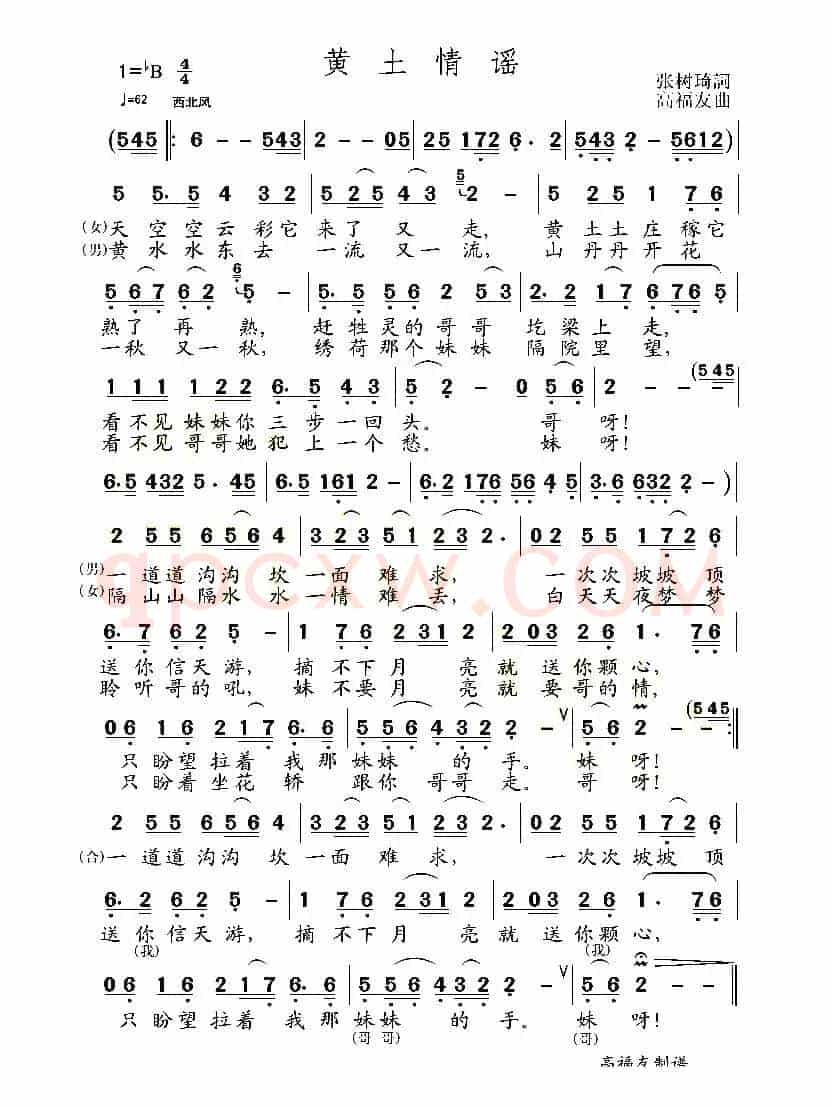 黄土情谣
1=♭B 4/4
♩=62 西北风
张树琦詞
高福友曲
(545 ‖: 6 - - 543 | 2 - - 05 | 25 172 6. 2 | 543 2 - 5612)
5 5. 5 4 32 | 5 25 43 5 2 - | 5 25 1 76
(女)天空空云彩它来了又走，黄土土庄稼它
(男)黄水水东去一流又一流，山丹丹开花
5 67 62 6 5 - | 5. 5 56 2 53 | 2. 2 17 676 5
熟了再熟，赶牲灵的哥哥圪梁上走，
一秋又一秋，绣荷那个妹妹隔院里望，
1 11 122 6. 5 43 | 5 2 - 0 56 | 2 - - (545
看不见妹妹你三步一回头。哥呀！
看不见哥哥她犯上一个愁。妹呀！
6.5 432 5. 45 | 6.5 161 2 - | 6.2 176 56 45 | 3.6 632 2 -)
2 55 6564 | 323 51 232. | 02 55 172 6
(男)一道道沟沟坎一面难求，一次次坡坡顶
(女)隔山山隔水水一情难丢，白天天夜梦梦
6. 7 62 5 - | 1 76 2 231 | 2 203 26 1. 76
送你信天游，摘不下月亮就送你颗心，
聆听哥的吼，妹不要月亮就要哥的情，
06 16 217 6. 6 | 556 432 2 - ∨ | 56 2 - - (545 :‖
只盼望拉着我那妹妹的手。妹呀！
只盼着坐花轿跟你哥哥走。哥呀！
2 55 6564 | 323 51 232. | 02 55 172 6
(合)一道道沟沟坎一面难求，一次次坡坡顶
6. 2 62 5 - | 1 76 2 231 2 | 2 203 26 1. 76
送你信天游，摘不下月亮就送你颗心，
(我) (我)
06 16 217 6. 6 | 556 432 2 - ∨ | 56 2 - - ‖
只盼望拉着我那妹妹的手。妹呀！
(哥哥) (哥)
高福友制谱
qpcxw.com